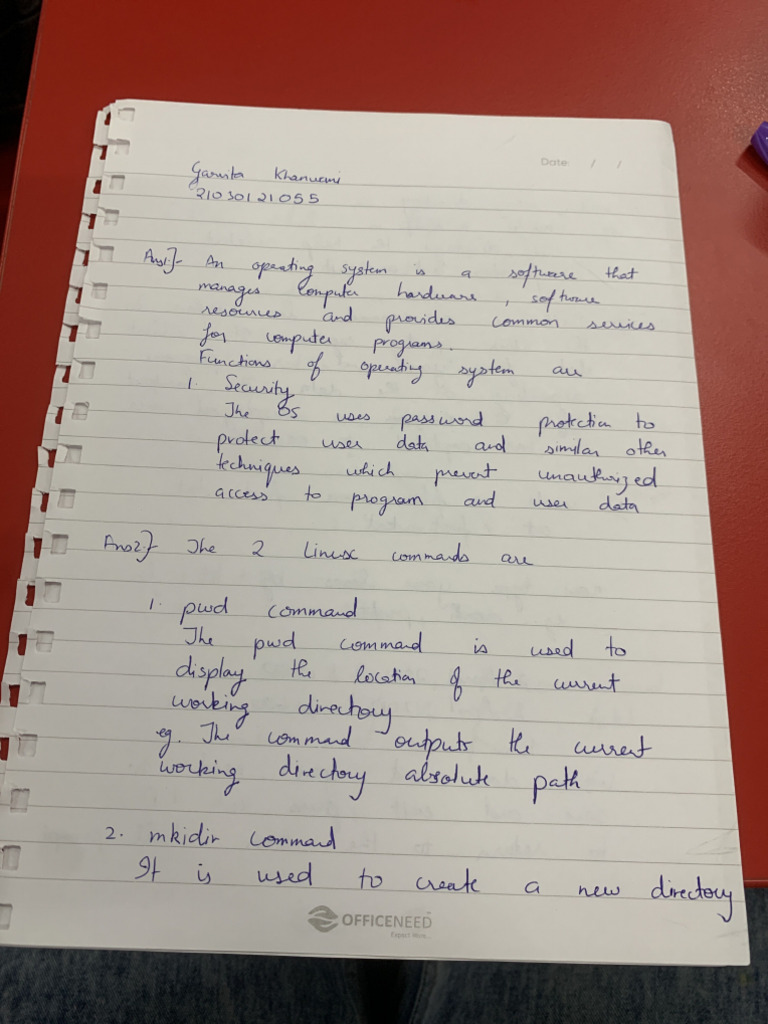 Date: / /
Garvita Khanwani
21030121055
Ans1:- An operating system is a software that
manages computer hardware, software
resources and provides common services
for computer programs.
Functions of operating system are
1. Security
The OS uses password protection to
protect user data and similar other
techniques which prevent unauthorized
access to program and user data
Ans2:- The 2 Linux commands are
1. pwd command
The pwd command is used to
display the location of the current
working directory
eg. The command outputs the current
working directory absolute path
2. mkidir command
It is used to create a new directory
OFFICENEED